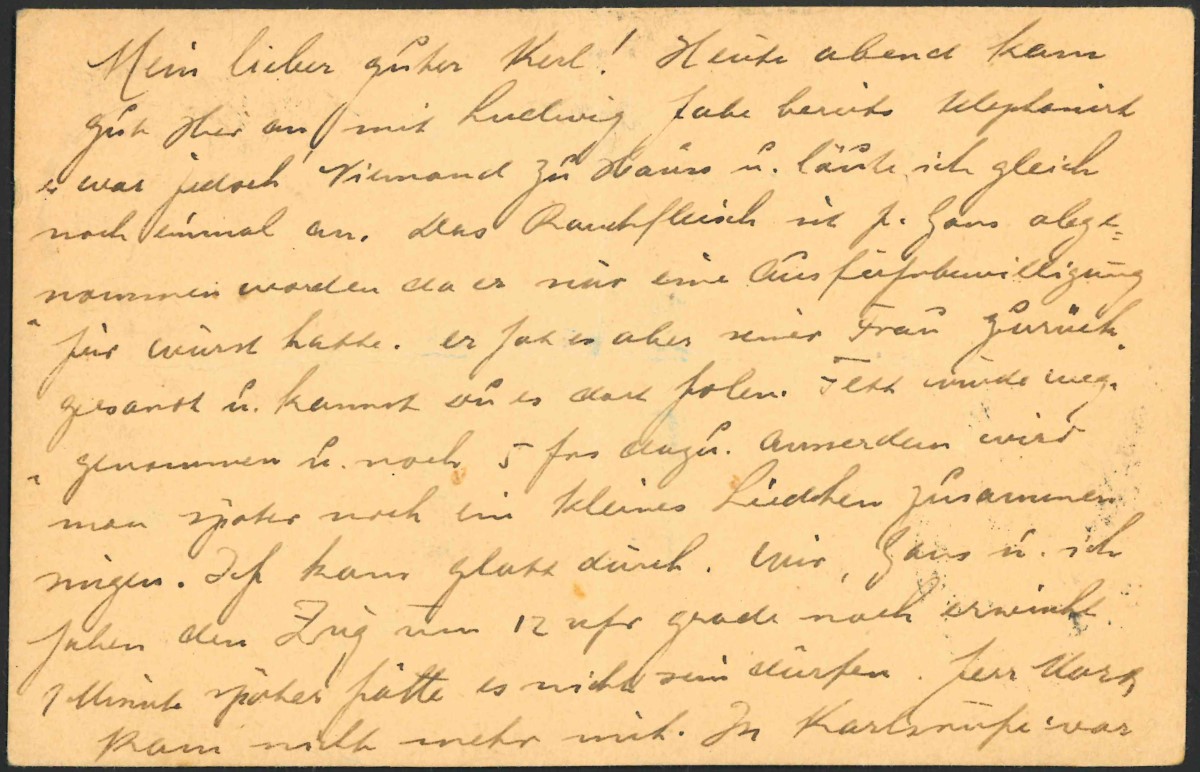 Mein lieber guter Kerl! Heute abend kam
gut hier an mit Ludwig habe bereits telephoniert
es war jedoch Niemand zu Haus u. läute ich gleich
noch einmal an. Das Rauchfleisch ist H. Hans abge=
nommen worden da er nur eine Ausfuhrbewilligung
für Wurst hatte. er hat es aber seiner Frau zurück
gesandt u. kannst du es dort holen. Fett wurde weg
genommen u. noch 5 frs dazu. Ausserdem wird
man später noch ein kleines Liedchen zusammen
singen. Ich kam glatt durch. Wir, Hans u. ich
haben den Zug um 12 uhr grade noch erwischt
1 Minute später hätte es nicht sein dürfen. Herr
kam nicht mehr mit. In Karlsruhe war